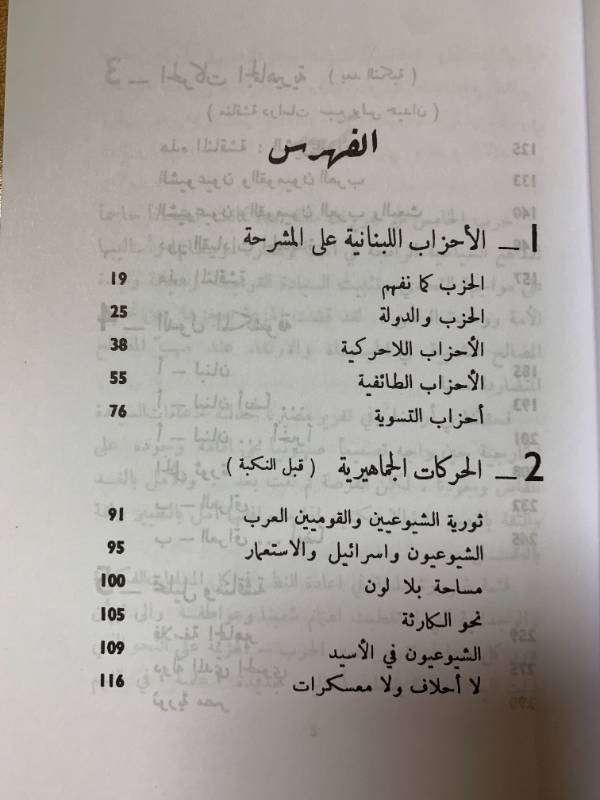 الفهرس
1 ـ الأحزاب اللبنانية على المشرحة
الحزب كما نفهم 19
الحزب والدولة 25
الأحزاب اللاحركية 38
الأحزاب الطائفية 55
أحزاب التسوية 76
2 ـ الحركات الجماهيرية ( قبل النكبة )
ثورية الشيوعيين والقوميين العرب 91
الشيوعيون واسرائيل والاستعمار 95
مساحة بلا لون 100
نحو الكارثة 105
الشيوعيون في الأسيد 109
لا أحلاف ولا معسكرات 116